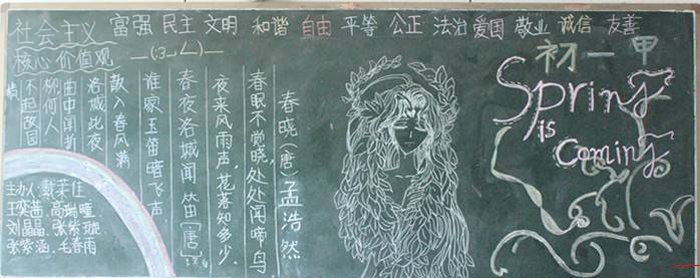 社会主义 富强 民主 文明 和谐 自由 平等 公正 法治 爱国 敬业 诚信 友善
核心价值观
初一甲
Spring
is
Coming
春晓(唐)孟浩然
春眠不觉晓，处处闻啼鸟
夜来风雨声，花落知多少.
春夜洛城闻笛[唐]
谁家玉笛暗飞声
散入春风满
洛城此夜
曲中闻折
柳何人
不起故园
情
主办人:
王奕茜.
刘晶晶.张紫璇
张紫涵.毛春雨